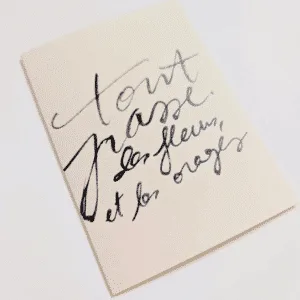 tout
passe.
les fleurs,
et les orages